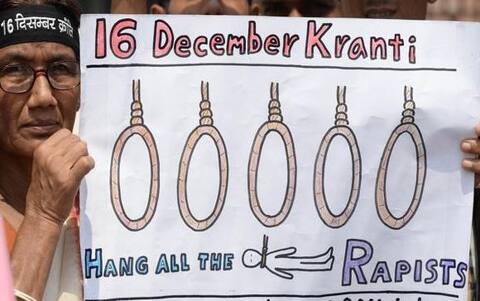 16 दिसम्बर क्रांति
16 December Kranti
HANG ALL THE RAPISTS